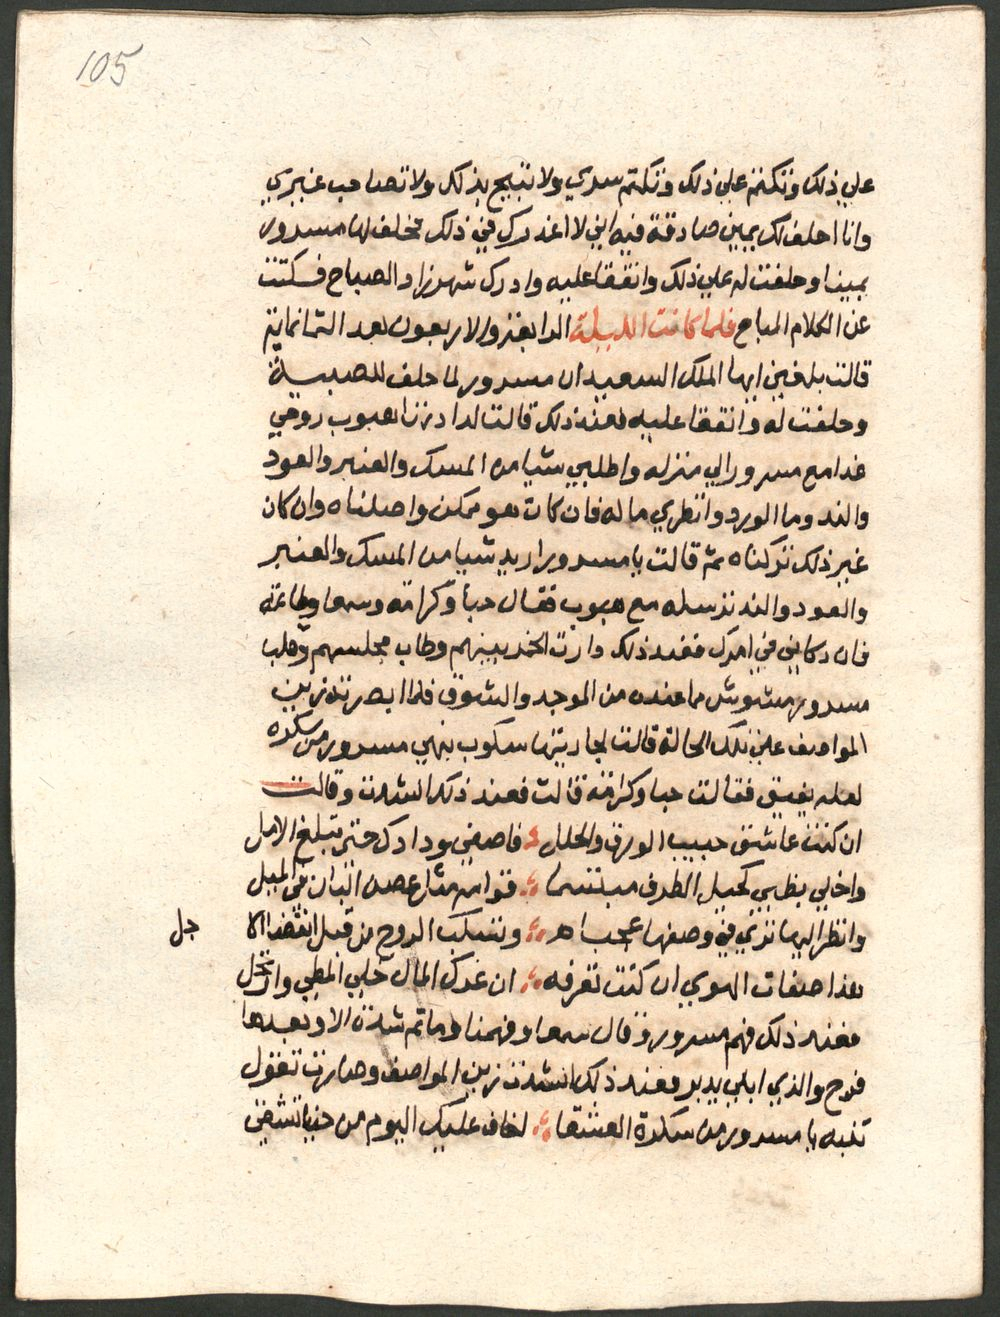 105
علي ذلك وتكنتم علي ذلك وتكتم سري ولا تبيح بذلك ولا تصاحب غيري
وانا احلف لك يمين صادقة فيه اني لا اغدرك في ذلك فحلف لها مسرور
يمينا وحلفت له علي ذلك واتفقا عليه وادرك شهرزاد الصباح فسكتت
عن الكلام المباح فلما كانت الليلة الرابعة والاربعون بعد الثمانماية
قالت بلغني ايها الملك السعيد ان مسرور لما حلف للصبية
وحلفت له واتفقا عليه فعند ذلك قالت لدادتها هبوب روحي
غدا مع مسرور الي منزله واطلبي شيا من المسك والعنبر والعود
والند وما الورد وانظري ماله فان كان هو ممكن واصلناه وان كان
غير ذلك تركناه ثم قالت يا مسرور اريد شيا من المسك والعنبر
والعود والند ترسله مع هبوب فقال حبا وكرامة وسمعا وطاعة
فان دكاني في امرك فعند ذلك دارت الخمر بينهم وطاب مجلسهم وقلب
مسرور مشوش مما عنده من الوجد والشوق فلما ابصرته زين
المواصف علي تلك الحالة قالت لجاريتها سكوب نبهي مسرور من سكره
لعله يفيق فقالت حبا وكرامة قالت فعند ذلك انشدت وقالت
ان كنت عاشق حبيب الورق والحلل ؛ فاصفي ودادك حتى تبلغ الامل
واخلي بظبي كحيل الطرف مبتسما ؛ قوامه مثل غصن البان في الميل
وانظر اليها تري في وصفها عجبا ؛ وتسكب الروح من قبل انقضا الا
جل
هذا صفات الهوي ان كنت تعرفه ؛ ان غرك المال خلي المطي وارتحل
فعند ذلك فهم مسرور وقال سمعا وفهمنا وما تم شدة الا وبعدها
فرح والذي ابلي يدبر فعند ذلك انشدت زين المواصف وصارت تقول
تنبه يا مسرور من سكرة العشقا ؛ اخاف عليك اليوم من حبنا تشقي